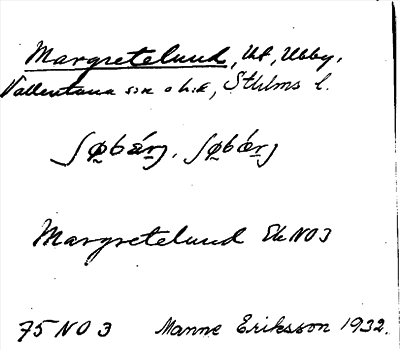 Margretelund, Ut, Ubby,
Vallentuna sn o h:d, Sthlms l.
ʃøbærj, ʃøbærj
Margretelund Ek NO3
75 NO 3 Manne Eriksson 1932.